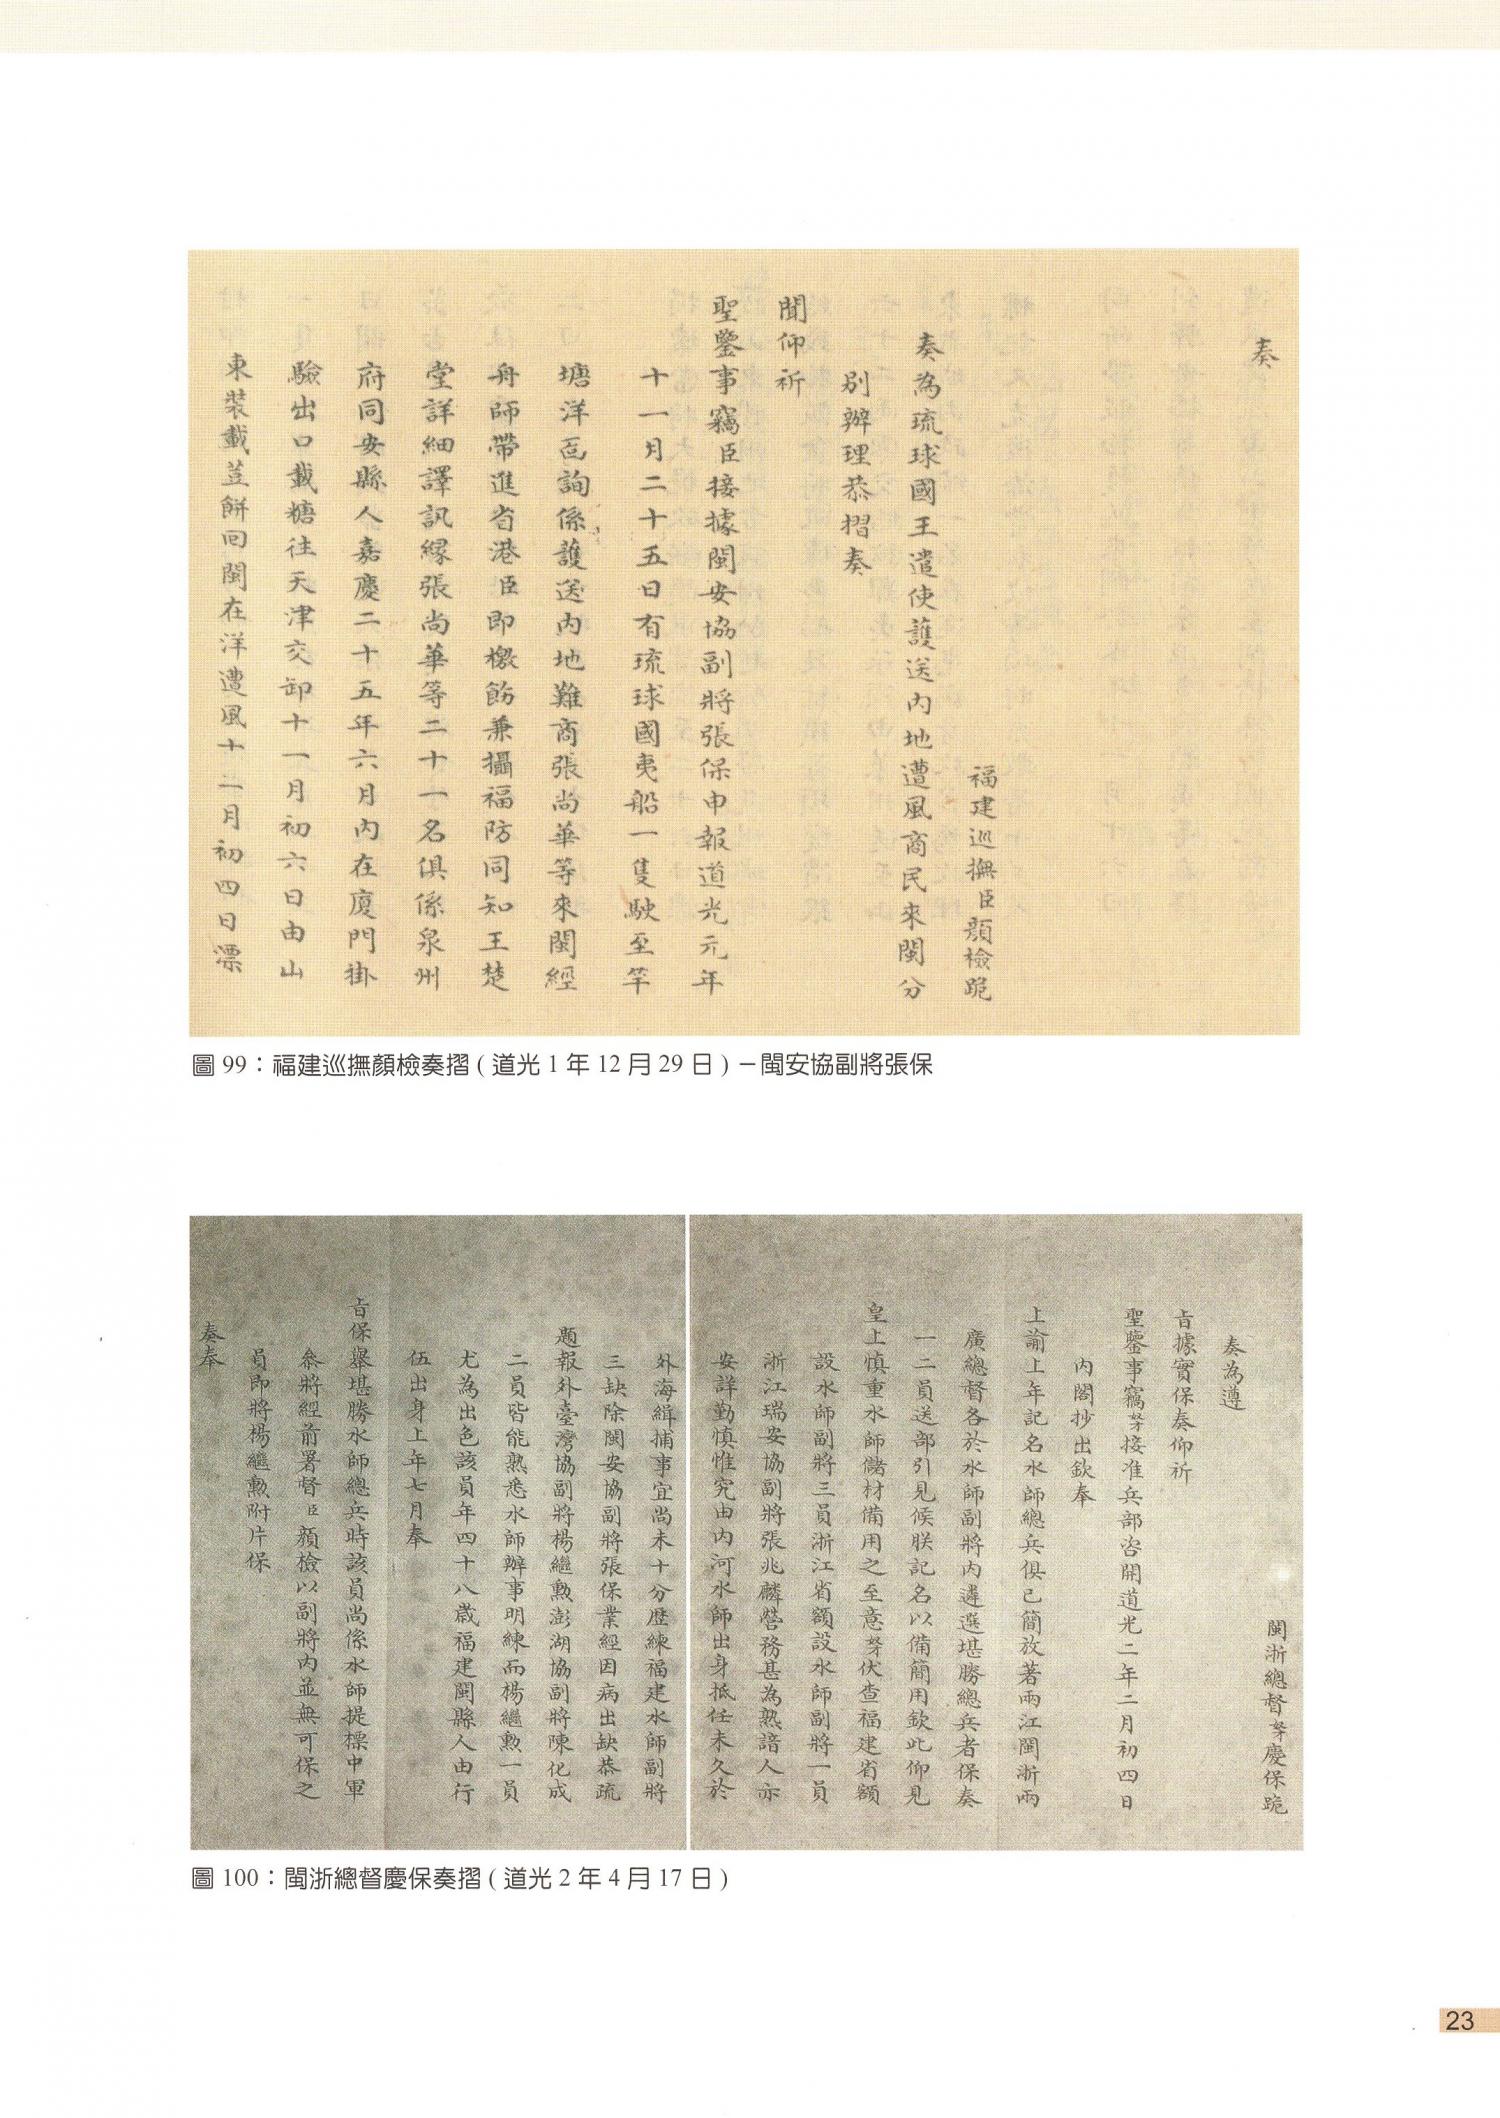 奏
福建巡撫臣顏檢跪
奏為琉球國王遣使護送內地遭風商民來閩分
別辦理恭摺奏
聞仰祈
聖鑒事竊臣接據閩安協副將張保申報道光元年
十一月二十五日有琉球國夷船一隻駛至竿
塘洋面詢係護送內地難商張尚華等來閩經
舟師帶進省港臣即檄飭兼攝福防同知王楚
堂詳細譯訊緣張尚華等二十一名俱係泉州
府同安縣人嘉慶二十五年六月內在廈門掛
驗出口載糖往天津交卸十一月初六日由山
東裝載荳餅回閩在洋遭風十二月初四日漂
圖 99：福建巡撫顏檢奏摺 ( 道光 1 年 12 月 29 日 ) －閩安協副將張保
閩浙總督奴才慶保跪
奏為遵
旨據實保奏仰祈
聖鑒事竊奴才接准兵部咨開道光二年二月初四日
內閣抄出欽奉
上諭上年記名水師總兵俱已簡放著兩江閩浙兩
廣總督各於水師副將內遴選堪勝總兵者保奏
一二員送部引見候朕記名以備簡用欽此仰見
皇上慎重水師儲材備用之至意奴才伏查福建省額
設水師副將三員浙江省額設水師副將一員
浙江瑞安協副將張兆麟營務甚為熟諳人亦
安詳勤慎惟究由內河水師出身抵任未久於
外海緝捕事宜尚未十分歷練福建水師副將
三缺除閩安協副將張保業經因病出缺恭疏
題報外臺灣協副將楊繼勲澎湖協副將陳化成
二員皆能熟悉水師辦事明練而楊繼勲一員
尤為出色該員年四十八歲福建閩縣人由行
伍出身上年七月奉
旨保舉堪勝水師總兵時該員尚係水師提標中軍
叅將經前署督臣顏檢以副將內並無可保之
員即將楊繼勲附片保
奏奉
圖 100：閩浙總督慶保奏摺 ( 道光 2 年 4 月 17 日 )
23